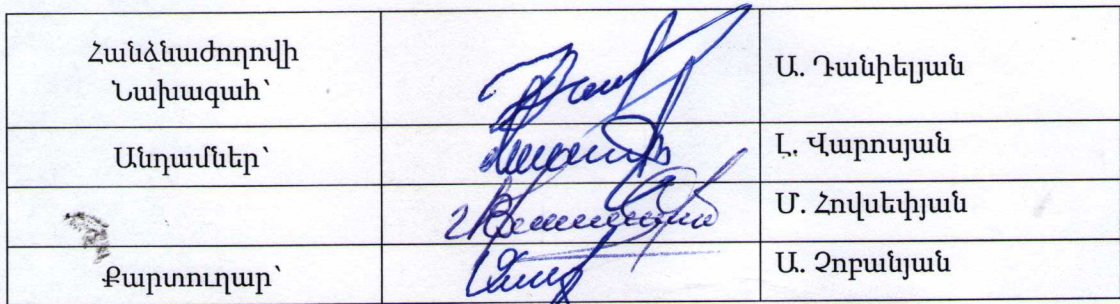 Հանձնաժողովի
Նախագահ՝
Ա. Դանիելյան
Անդամներ՝
Լ. Վարոսյան
Մ. Հովսեփյան
Քարտուղար՝
Ա. Չոբանյան